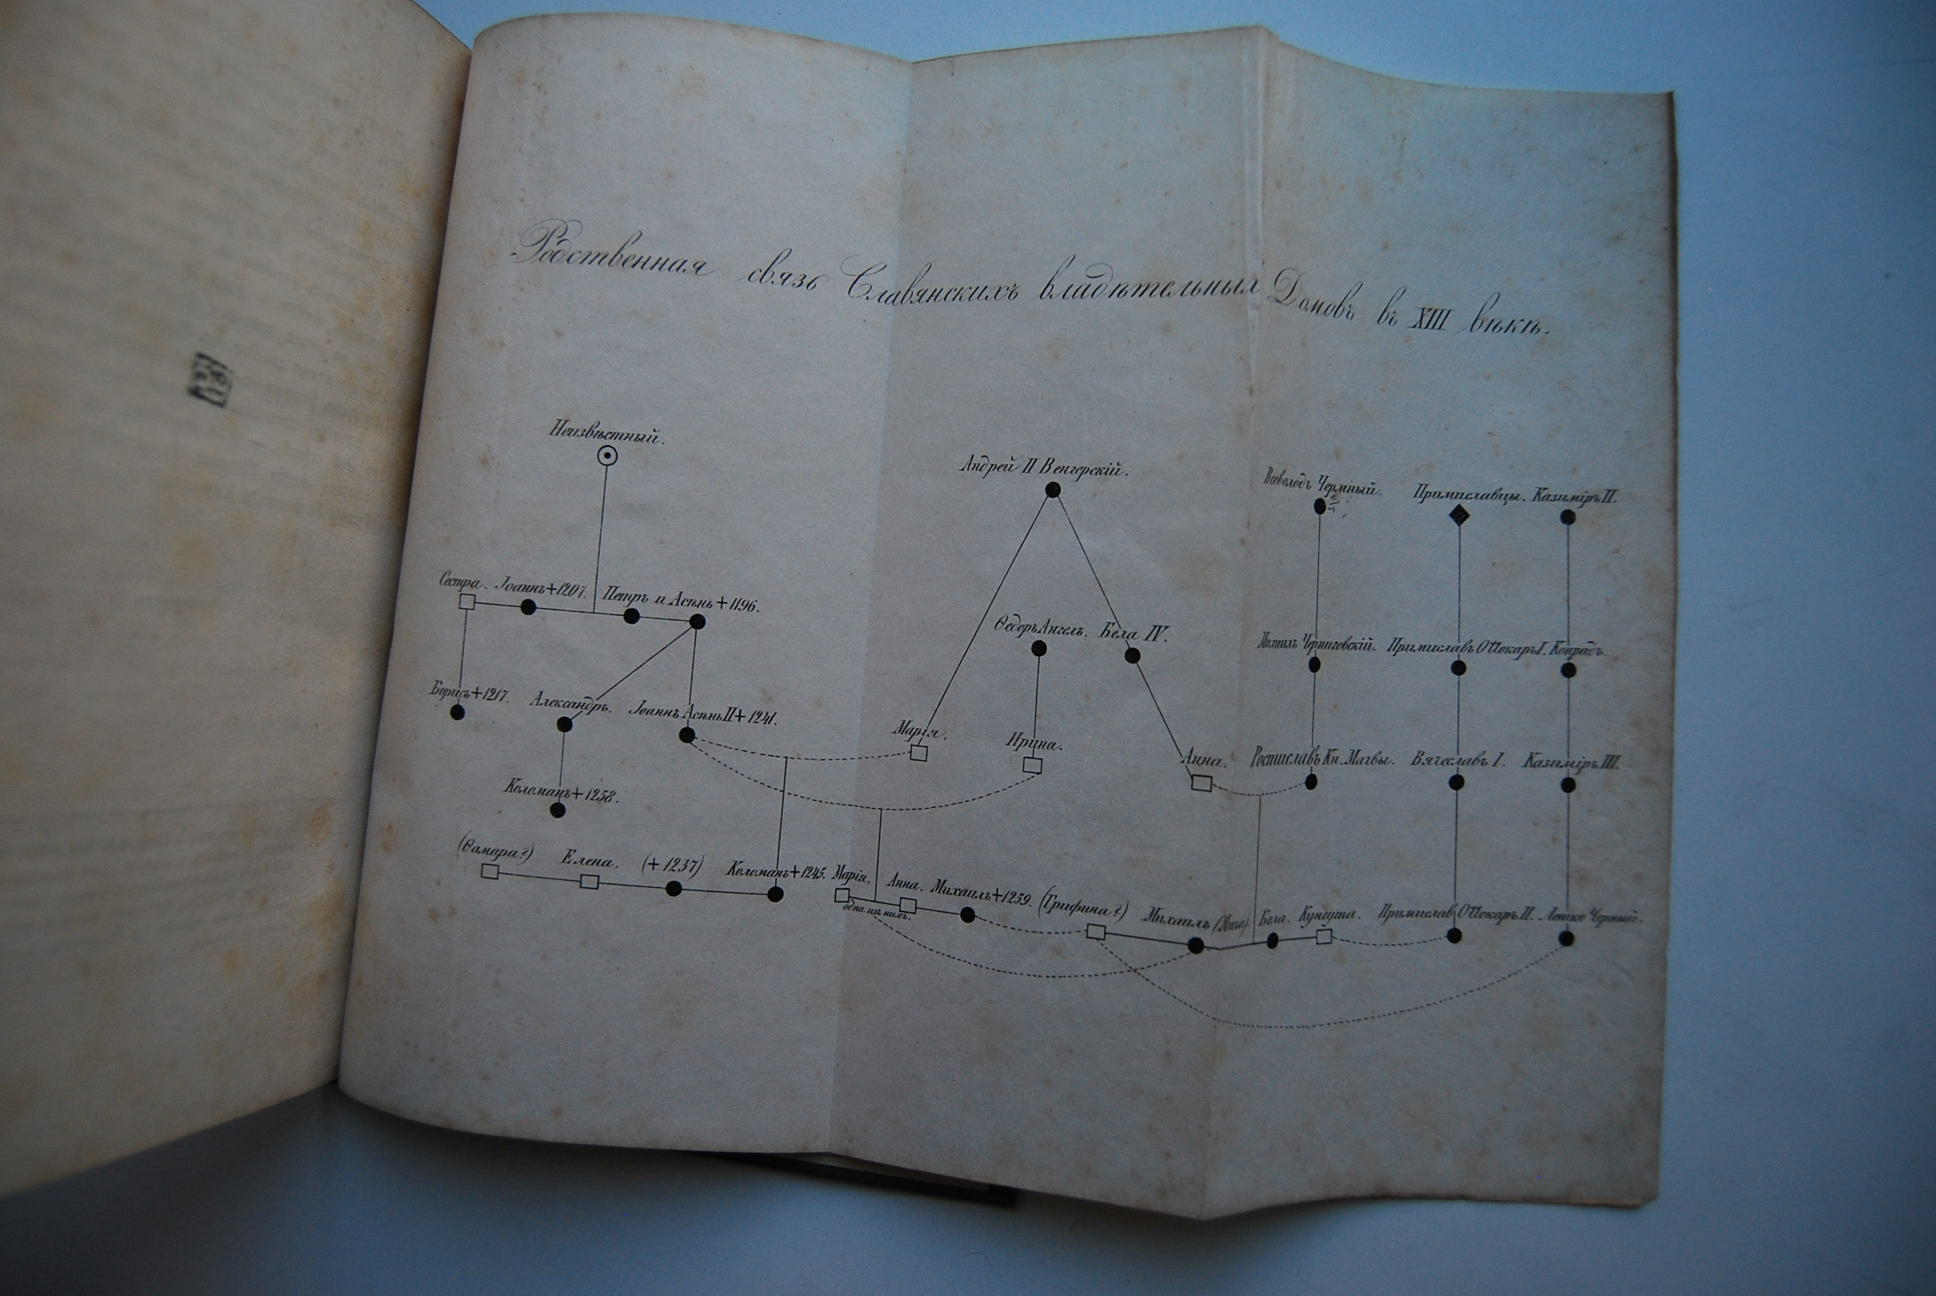 Родственная связь Славянскихъ владѣтельныхъ Домовъ въ XIII вѣкѣ.
Неизвѣстный.
Андрей II Венгерскій.
Всеволодъ Чермный. Примиславцы. Казиміръ II.
Сестра. Іоаннъ+1207. Петръ и Асѣнь+1196.
Ѳедоръ Ангелъ. Бела IV.
Михаилъ Черниговскій. Примиславъ Оттокаръ I. Конрадъ.
Борисъ+1217. Александръ. Іоаннъ Асѣнь II+1241.
Марія. Ирина.
Анна. Ростиславъ Кн. Мачвы. Вячеславъ I. Казиміръ III.
Коломанъ+1258.
(Ѳамара?) Елена. (+1237) Коломанъ+1245. Марія. Анна. Михаилъ+1259. (Грифина?) Михаилъ Бела. Кунгута. Примиславъ Оттокаръ II. Лешко Черный.
одна изъ нихъ.